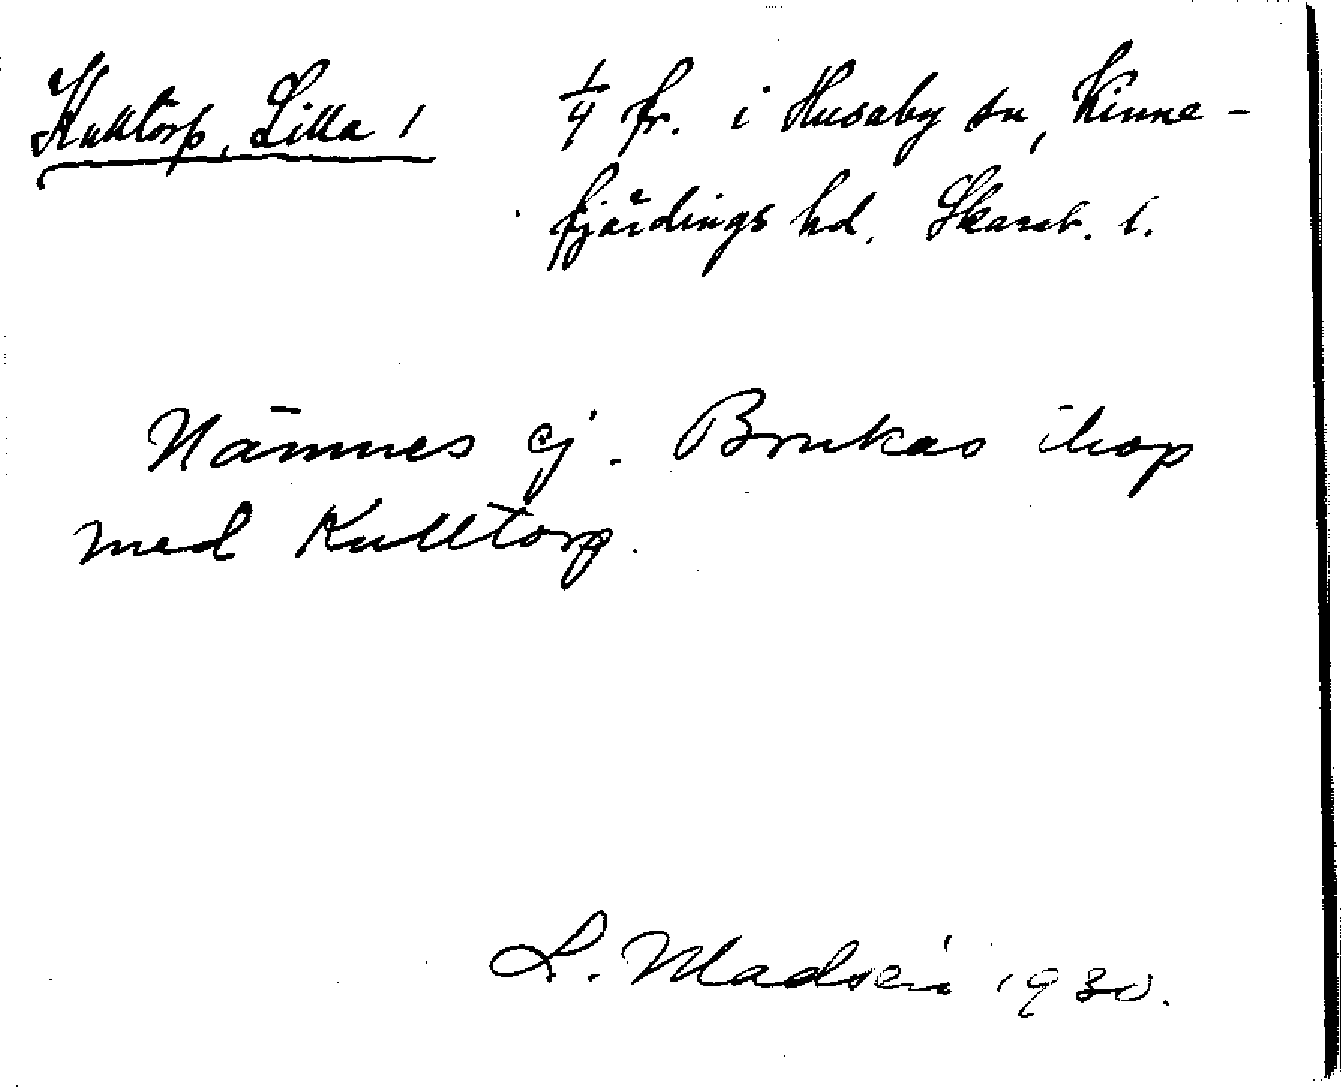 Kulltorp, Lilla 1 1/4 fr. i Husaby sn, Kinne-
fjärdings hd. Skarab. l.
Nämnes ej. Brukas ihop
med Kulltorp.
L. Madsén 1930.